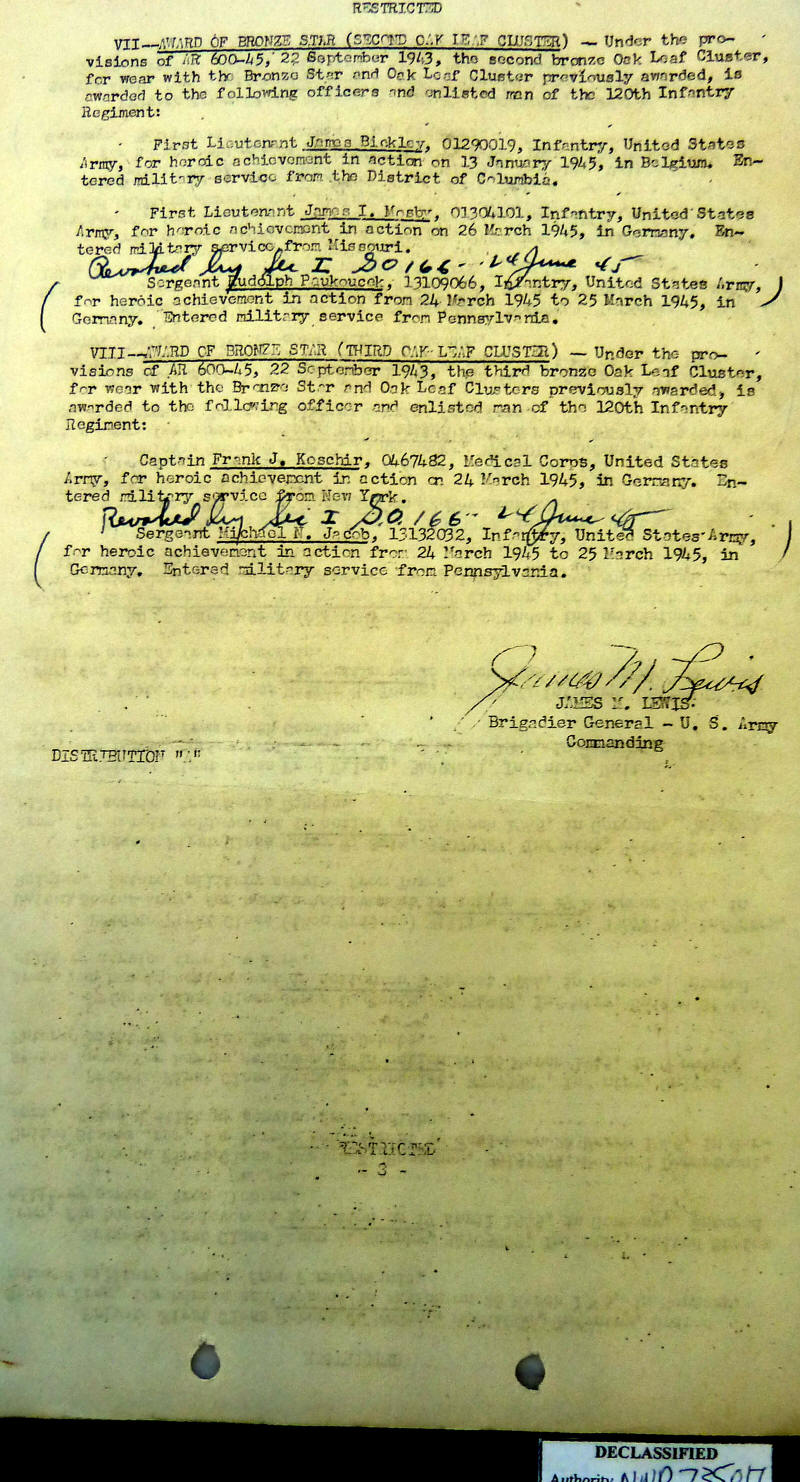 RESTRICTED
VII—AWARD OF BRONZE STAR (SECOND OAK LEAF CLUSTER) — Under the pro-
visions of AR 600-45, 22 September 1943, the second bronze Oak Leaf Cluster,
for wear with the Bronze Star and Oak Leaf Cluster previously awarded, is
awarded to the following officers and enlisted man of the 120th Infantry
Regiment:
First Lieutenant James Bickley, 01290019, Infantry, United States
Army, for heroic achievement in action on 13 January 1945, in Belgium. En-
tered military service from the District of Columbia.
First Lieutenant James I. Mosby, 01304101, Infantry, United States
Army, for heroic achievement in action on 26 March 1945, in Germany. En-
tered military service from Missouri.
Revoked by Sec I GO 166 - 24 June 45
Sergeant Rudolph Paukoucek, 13109066, Infantry, United States Army,
for heroic achievement in action from 24 March 1945 to 25 March 1945, in
Germany. Entered military service from Pennsylvania.
VIII—AWARD OF BRONZE STAR (THIRD OAK LEAF CLUSTER) — Under the pro-
visions of AR 600-45, 22 September 1943, the third bronze Oak Leaf Cluster,
for wear with the Bronze Star and Oak Leaf Clusters previously awarded, is
awarded to the following officer and enlisted man of the 120th Infantry
Regiment:
Captain Frank J. Koschir, 0467482, Medical Corps, United States
Army, for heroic achievement in action on 24 March 1945, in Germany. En-
tered military service from New York.
Revoked by Sec I GO 166 - 24 June 45
Sergeant Michael N. Jacob, 13132032, Infantry, United States Army,
for heroic achievement in action from 24 March 1945 to 25 March 1945, in
Germany. Entered military service from Pennsylvania.
James M. Lewis
JAMES M. LEWIS
Brigadier General - U. S. Army
Commanding
DISTRIBUTION "A"
RESTRICTED
- 3 -
DECLASSIFIED
Authority